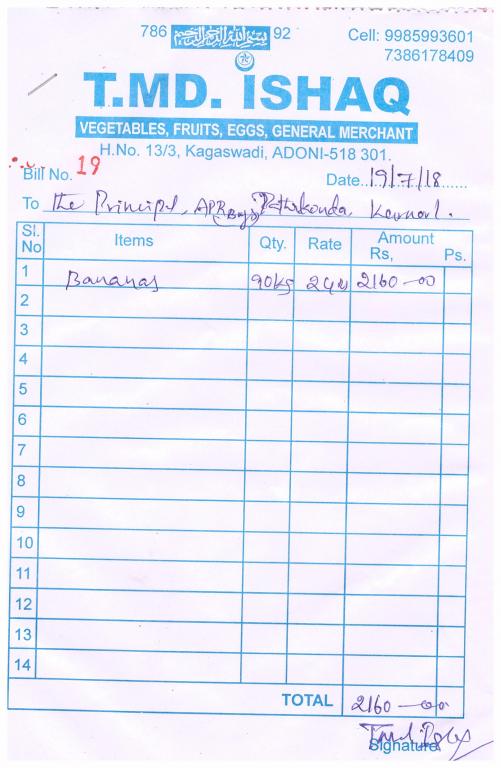 786 بسم الله الرحمن الرحيم 92
Cell: 9985993601
7386178409
T.MD. ISHAQ
VEGETABLES, FRUITS, EGGS, GENERAL MERCHANT
H.No. 13/3, Kagaswadi, ADONI-518 301.
Bill No. 19 Date. 19/7/18
To The Principal, APR (Boys) Kurnool.
Sl. No Items Qty. Rate Amount Rs, Ps.
1 Bananas 90kg 24 2160-00
2
3
4
5
6
7
8
9
10
11
12
13
14
TOTAL 2160-00
Signature